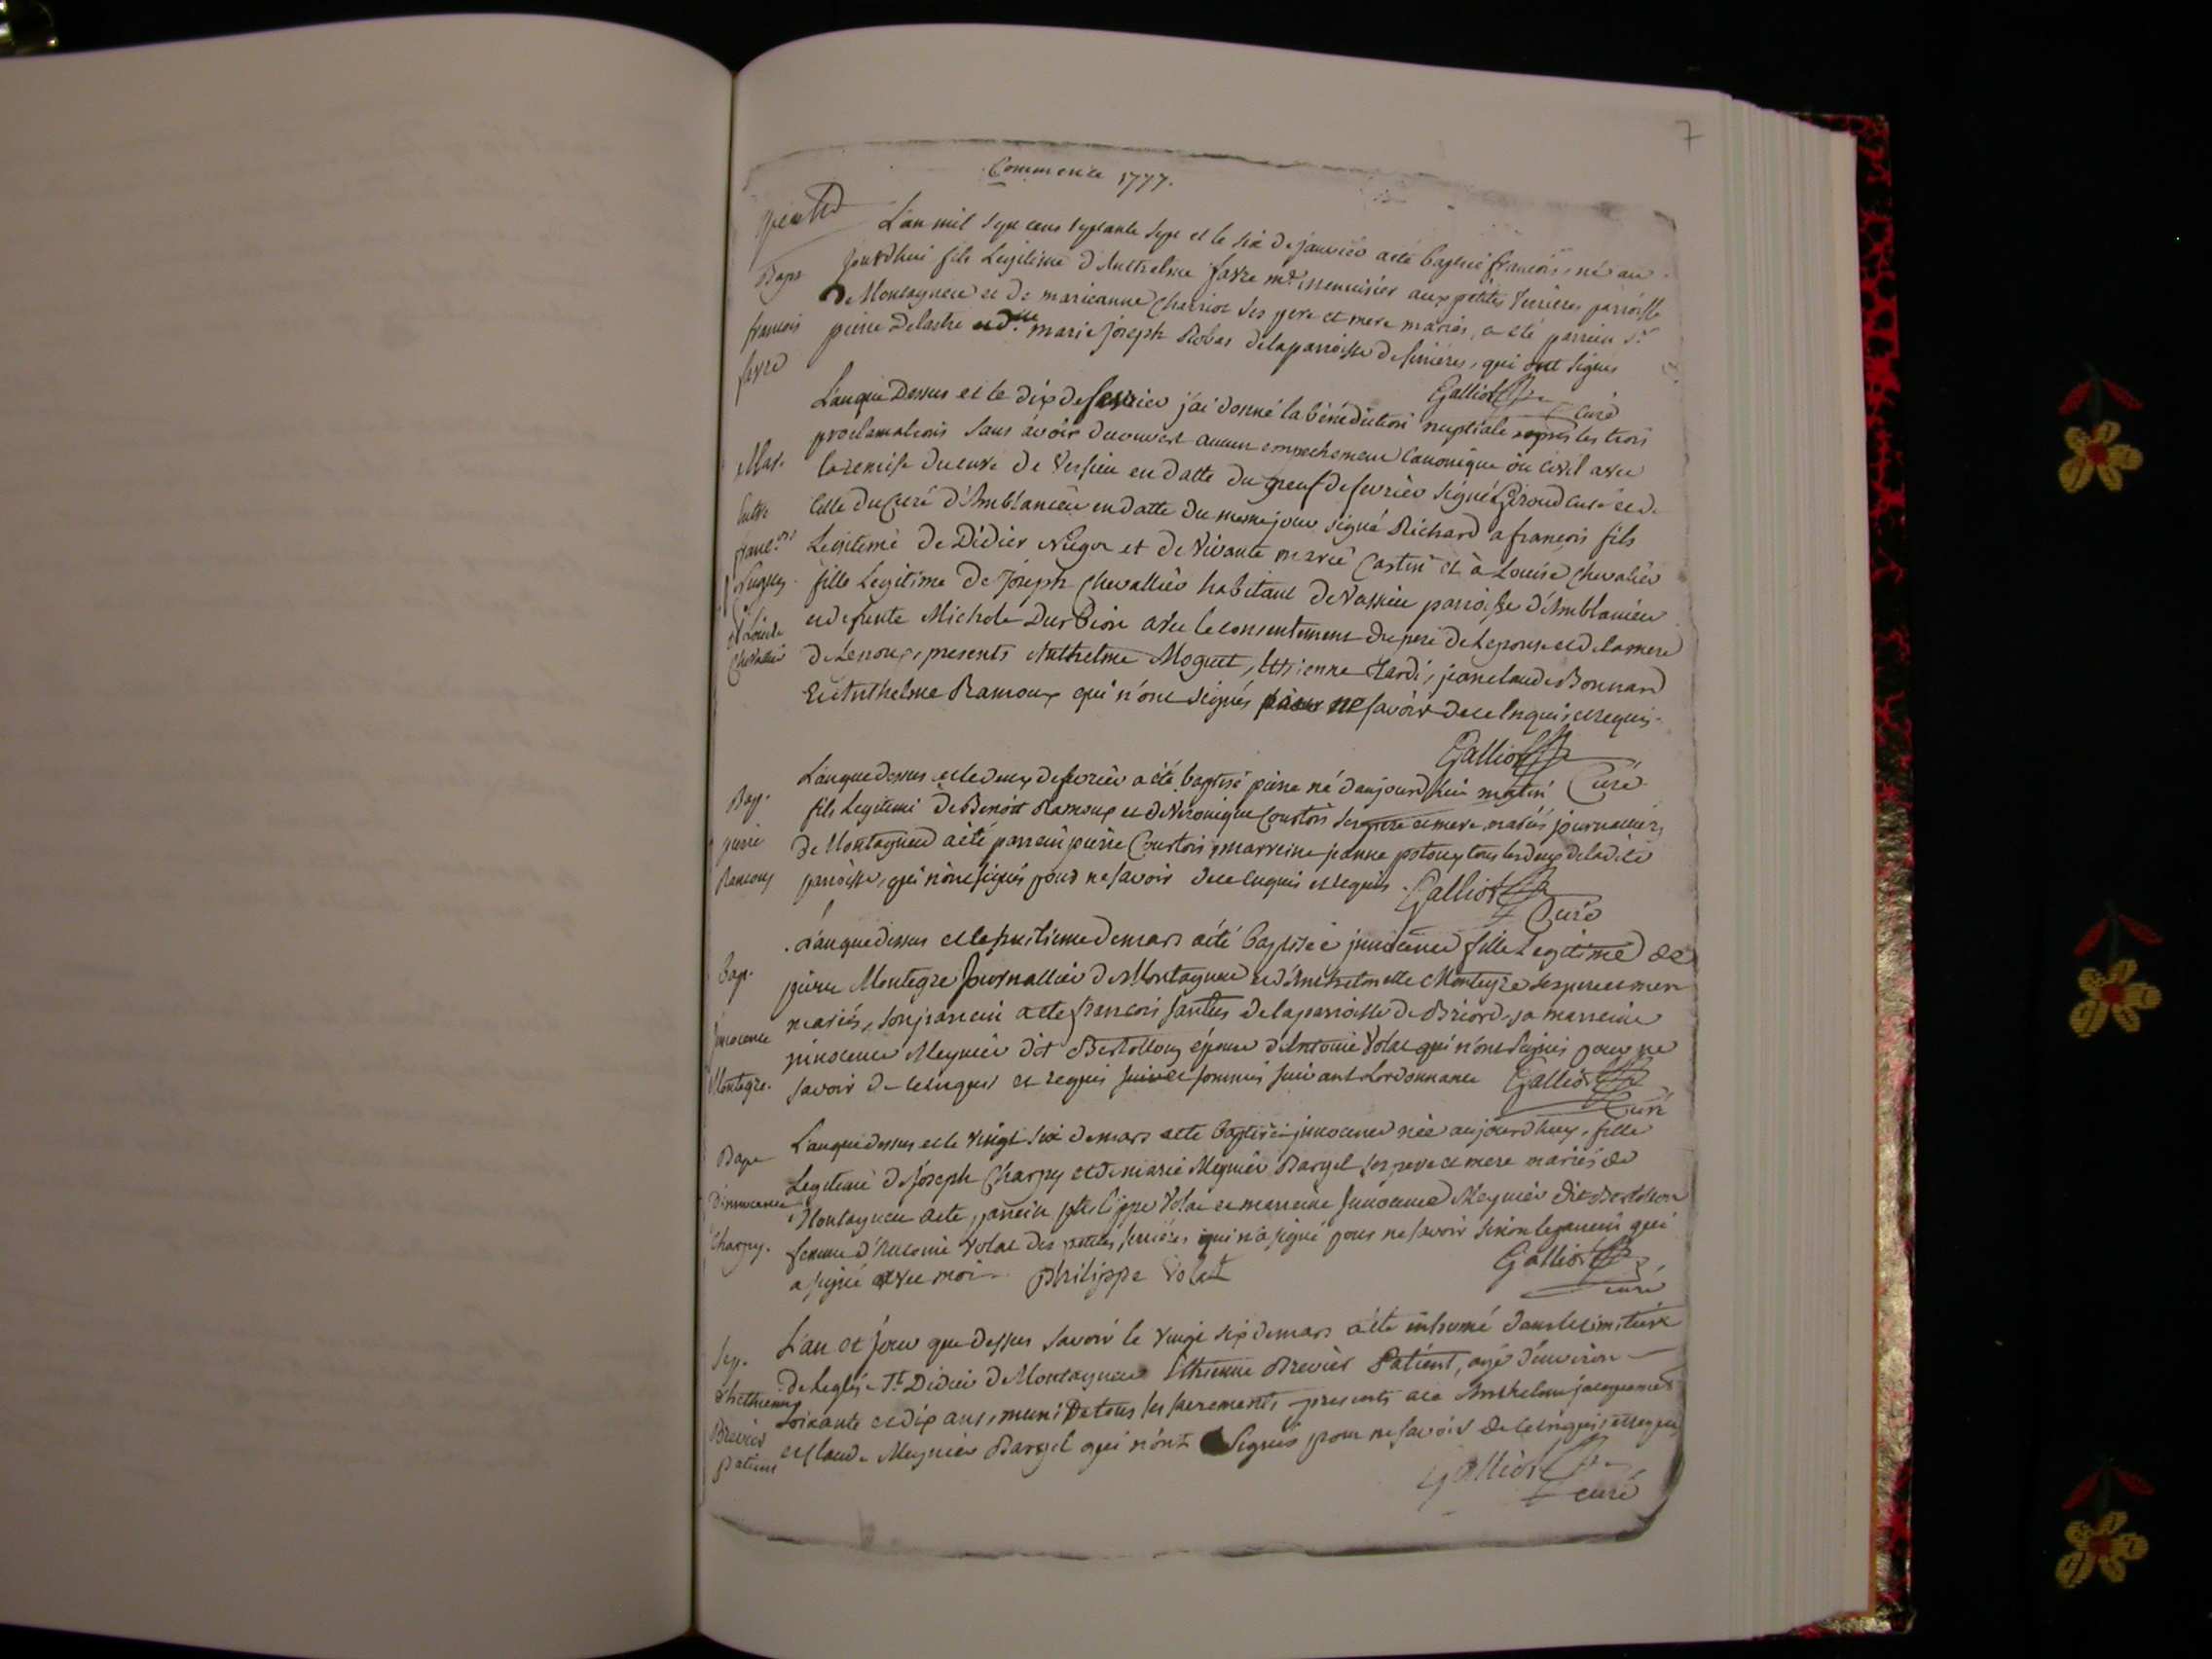 7
Commence 1777.
L'an mil sept cens septante sept et le six de janvier a été baptisé francois, né au
jourdhui fils Legitime d'Anthelme favre md. menuisier aux petites Serrieres parroisse
de Montagneu et de marieanne Charriot ses pere et mere mariés, a été parrein Sr.
pierre Delastre et dlle marie joseph Robas de la parroisse de seriéres, qui ont signés
Bapt
francois
favre
Galliot
curé
L'an que Dessus et le dix de fevrier j'ai donné la bénédiction nuptiale après les trois
proclamations sans avoir decouvert aucun empechement Canonique ou civil avec
la remise du curé de Versieu en datte du neuf de fevrier signé Giroud curé et de
celle du Curé d'Amblanieu en datte du meme jour signé Richard a francois fils
Legitime de Didier Nugos et de Vivante marie Castin et à Louise Chevalier
fille Legitime de Joseph Chevallier habitant de Vassieu parroisse d'Amblanieu
et defunte Michele Durbion avec le consentement du pere de Lepouse et de la mere
de Lepoux, presents Anthelme Moguet, Etienne Tardi, jeanclaude Bonnard
et Anthelme Ramoux qui n'ont signés pour ne savoir de ce Enquis et requis.
Mar.
Entre
franc.ois
Nugues
et Louise
Chevallier
Galliot
Curé
L'an que dessus et le deux de fevrier a été baptisé pierre né d'aujourdhui matin
fils Legitime de Benoit Ramoux et de Véronique Courtois ses pere et mere mariés journaliers
de Montagneu a été parrein pierre Courtois marreine jeanne potoux tous les deux de la dite
parroisse, qui n'ont signés pour ne savoir de ce enquis et requis. Galliot
Curé
Bap.
pierre
Ramoux
L'an que dessus et le huitieme de mars a été baptisée innocence fille Legitime de
pierre Montegre Journallier de Montagneu et d'Anthelmette Montegre ses pere et mere
mariés, son parrein a été francois santus de la parroisse de Briord, sa marreine
innocence Meynier dit Bertollon épouse d'Antoine Volat qui n'ont signés pour ne
savoir de ce enquis et requis suivant Lordonnance Galliot
Curé
bap.
Innocence
Montegre.
L'an que dessus et le vingt six de mars a été baptisée innocence née aujourdhuy, fille
Legitime de Joseph Charpy et de marie Meynier Bargel ses pere et mere mariés de
Montagneu a été parrein philippe Volat et marreine Innocence Meynier dit Bertollon
femme d'Antoine Volat des petites serriéres qui n'a signé pour ne savoir sinon le parrein qui
a signé avec moi. philippe Volat
Galliot
curé
Bap
D'innocence
Charpy.
L'an et jour que dessus savoir le vingt six de mars a été inhumé dans le cimetiere
de leglise St Didier de Montagneu Etienne Brevier Patient, agé d'environ
soixante et dix ans, muni de tous les sacrements presents a ce Anthelme jacquemet
et claude Meynier Bargel qui n'ont signés pour ne savoir de ce enquis et requis
Sep.
d'Ethienne
Brevier
patient
Galliot
curé